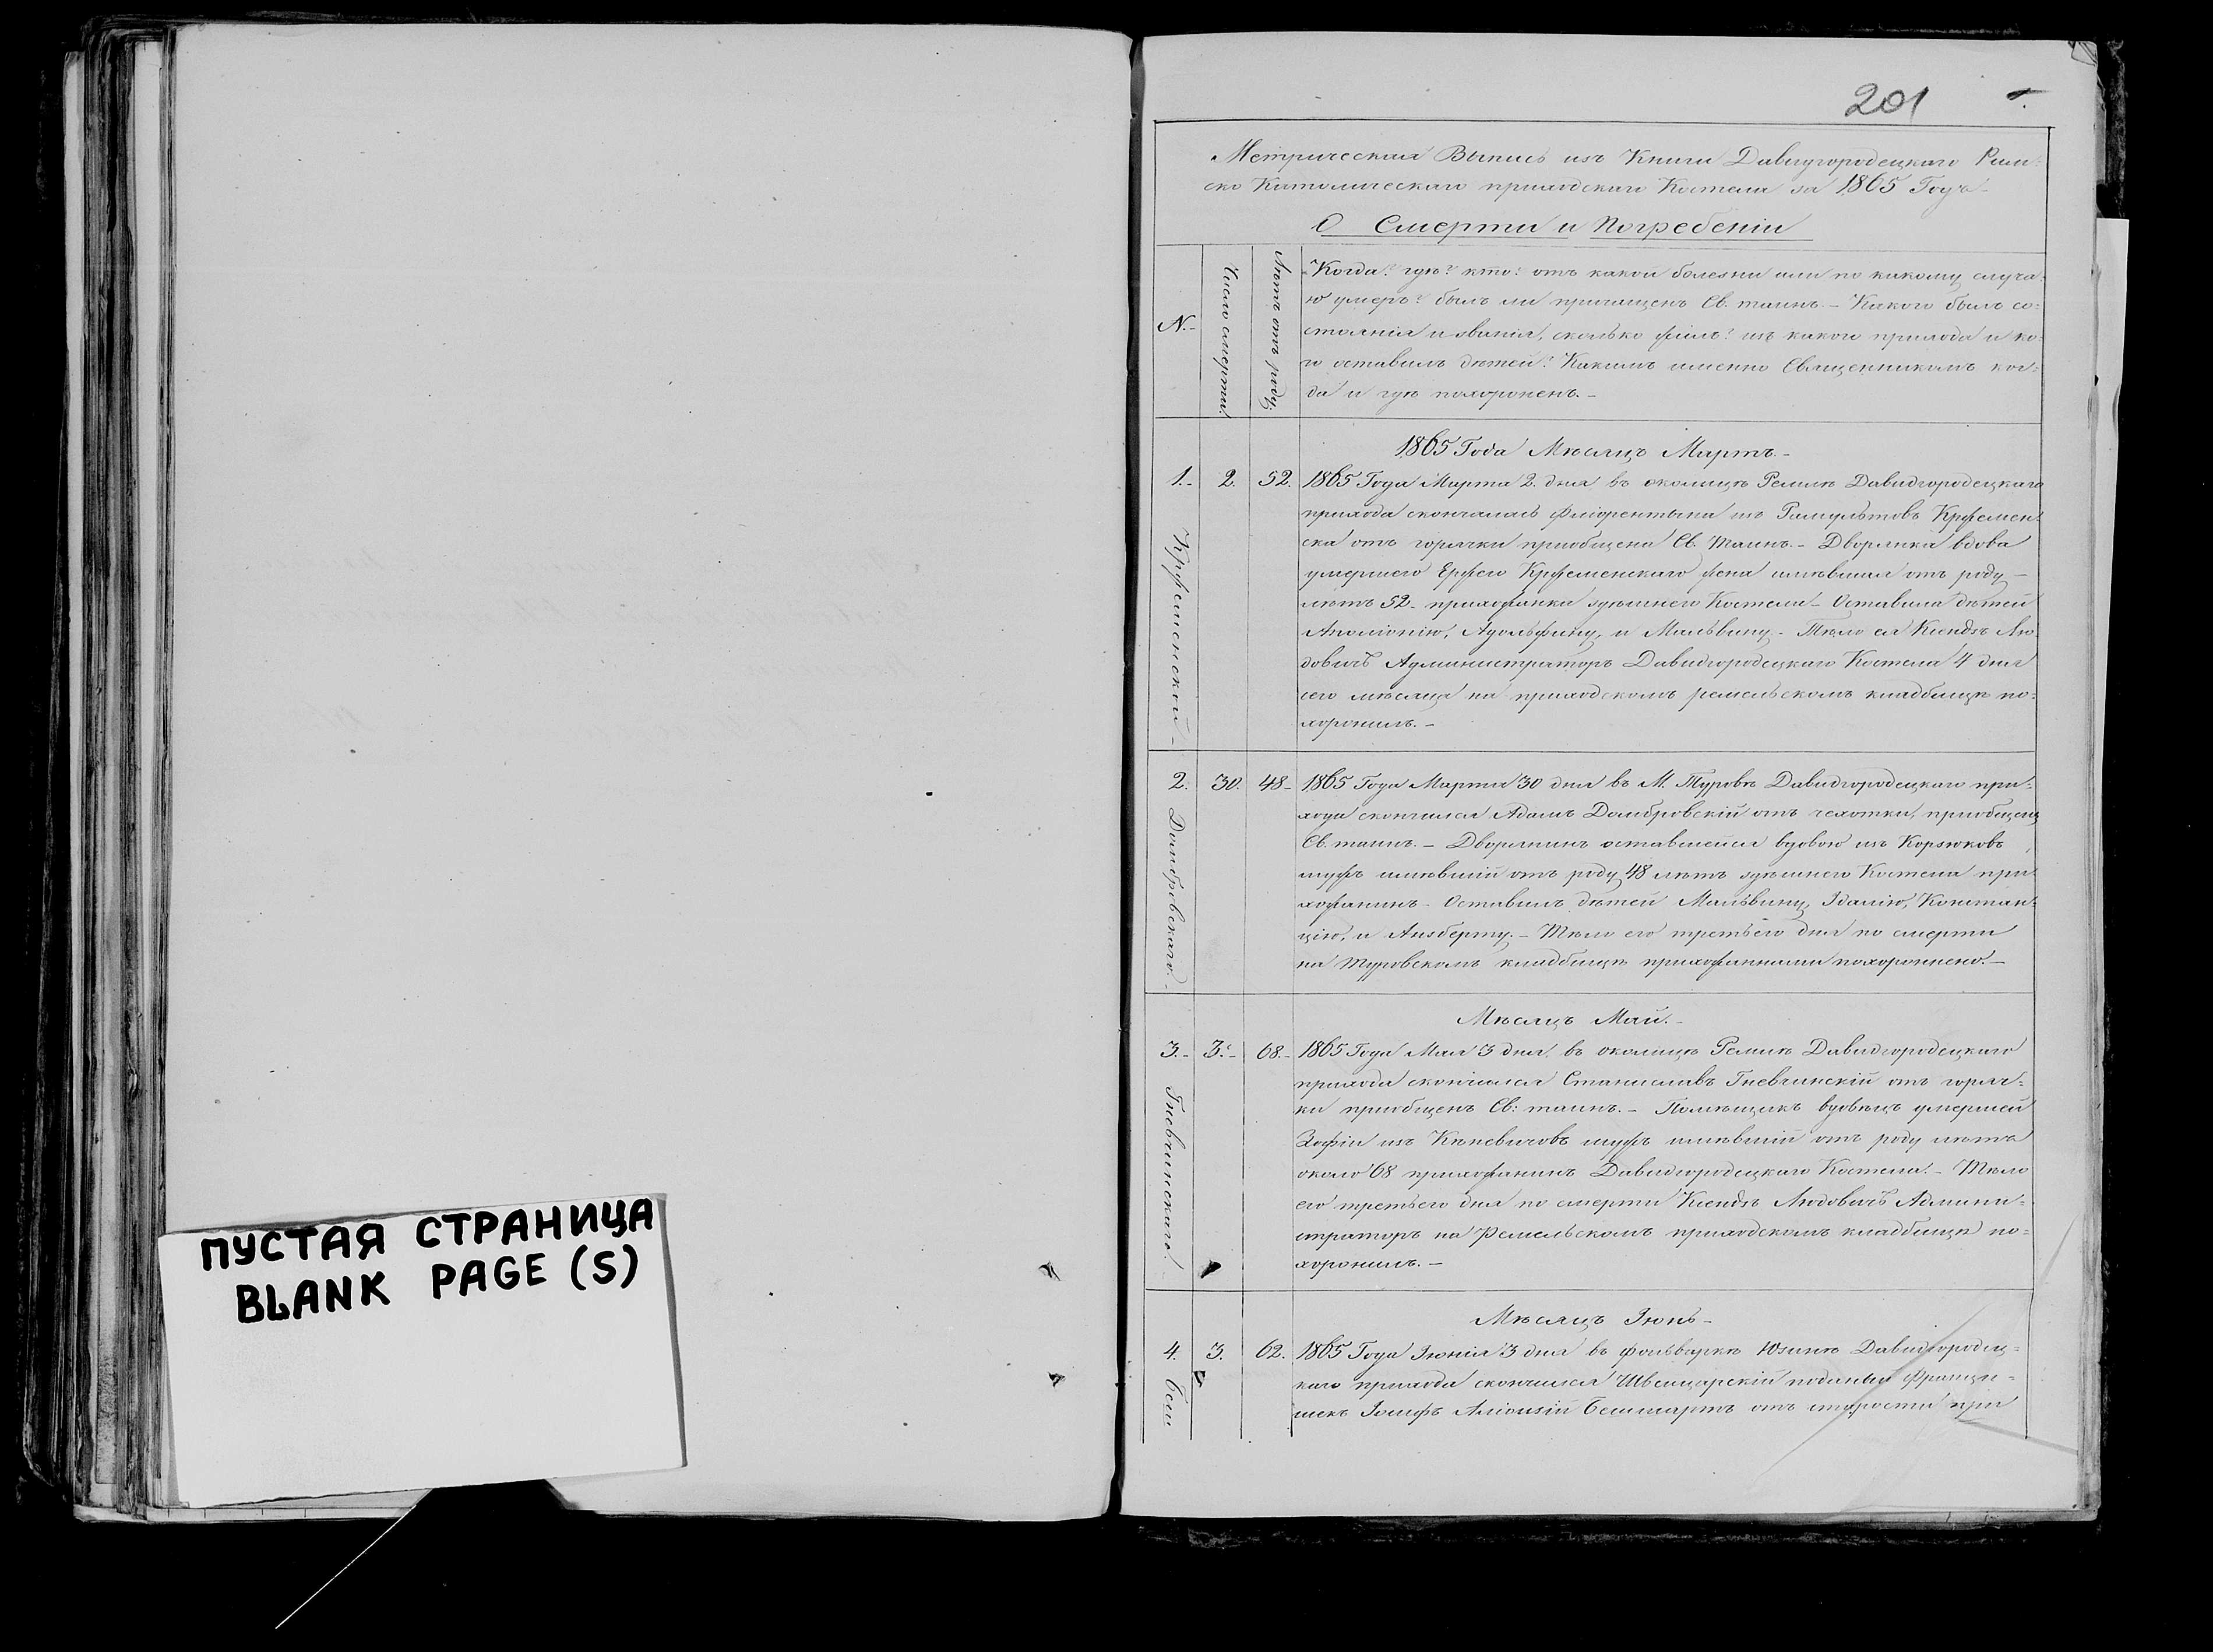 ПУСТАЯ СТРАНИЦА
BLANK PAGE (S)
201
Метрическая Выпись изъ Книги Давидгородецкаго Рим-
ско Католическаго приходскаго Костела за 1865 Годъ
О Смерти и Погребеніи
№
Число смерти.
Лѣтъ отъ роду.
Когда? гдѣ? кто? отъ какой болезни или по какому случа-
ю умеръ? былъ ли причащенъ Св. таинъ. – Какого былъ со-
стоянія и званія, сколько жилъ? изъ какого прихода и ко-
го оставилъ дѣтей? Какимъ именно Священникомъ ког-
да и гдѣ похороненъ. –
1865 Года Мѣсяцъ Мартъ. –
1. – 2. 52. 1865 Года Марта 2. дня въ околицѣ Ремлѣ Давидгородецкаго
прихода скончалась Флюрентына изъ Кржемен-
ска отъ горячки приобщена Св. Таинъ. – Дворянка вдова
умершего Ержего Кржеменскаго жена имѣвшая отъ роду –
лѣтъ 52 – прихожанка здѣшнего Костела – Оставила дѣтей
Аполіонію, Адольфину, и Мальвину. – Тѣло ея Ксендзъ Лю-
довичъ Администраторъ Давидгородецкаго Костела 4 дня
сего мѣсяца на приходскомъ ремельскомъ кладбищѣ по-
хоронилъ. –
Кржеменской –
2. 30. 48 – 1865 Года Марта 30 дня въ М. Туровѣ Давидгородецкаго при-
хода скончался Адамъ Домбровскій отъ чехотки, приобщенъ
Св. таинъ. – Дворянинъ оставшейся вдовою изъ Корзюковъ
мужъ имѣвшій отъ роду 48 лѣтъ здѣшнего Костела при-
хожанинъ – Оставилъ дѣтей Мальвину, Эдалію, Констан-
цію, и Анзберту. – Тѣло его третьего дня по смерти
на Туровскомъ кладбищѣ прихожаннами похороннено. –
Домбровскаго. –
Мѣсяцъ Май. –
3. – 3. – 68. – 1865 Года Мая 3 дня, въ околицѣ Ремлѣ Давидгородецкаго
прихода скончился Станиславъ Гневчинскій отъ горяч-
ки приобщенъ Св: таинъ. – Помѣщикъ вдовецъ умершей
Зофіи изъ Кѣневичовъ мужъ имѣвшій отъ роду лѣтъ
около 68 прихожанинъ Давидгородецкаго Костела. – Тѣло
его третьего дня по смерти Ксендзъ Людовичъ Админи-
страторъ на Ремельскомъ приходскомъ кладбищѣ по-
хоронилъ. –
Гневчинскаго.
Мѣсяцъ Іюнь –
4. 3. 62. 1865 Года Іюнія 3 дня въ фольваркѣ Юзинѣ Давидгородец-
каго прихода скончился Швейцарскій поданый Францы-
шекъ Іозифъ Алюизій отъ старости при